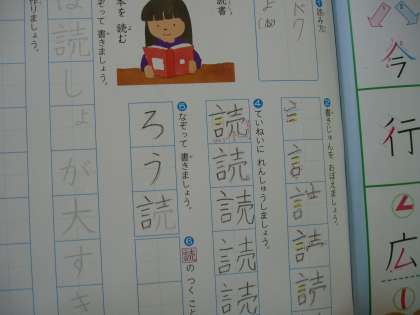 今
行
広
①
① 読み方
ドク
よ(む)
② 書きじゅんを おぼえましょう。
④ ていねいに れんしゅうしましょう。
読
読
読
読
読
読書
本を 読む
⑤ なぞって 書きましょう。
ろう読
⑥ 読 の つく こ
は読しょが大すき
作りましょう。